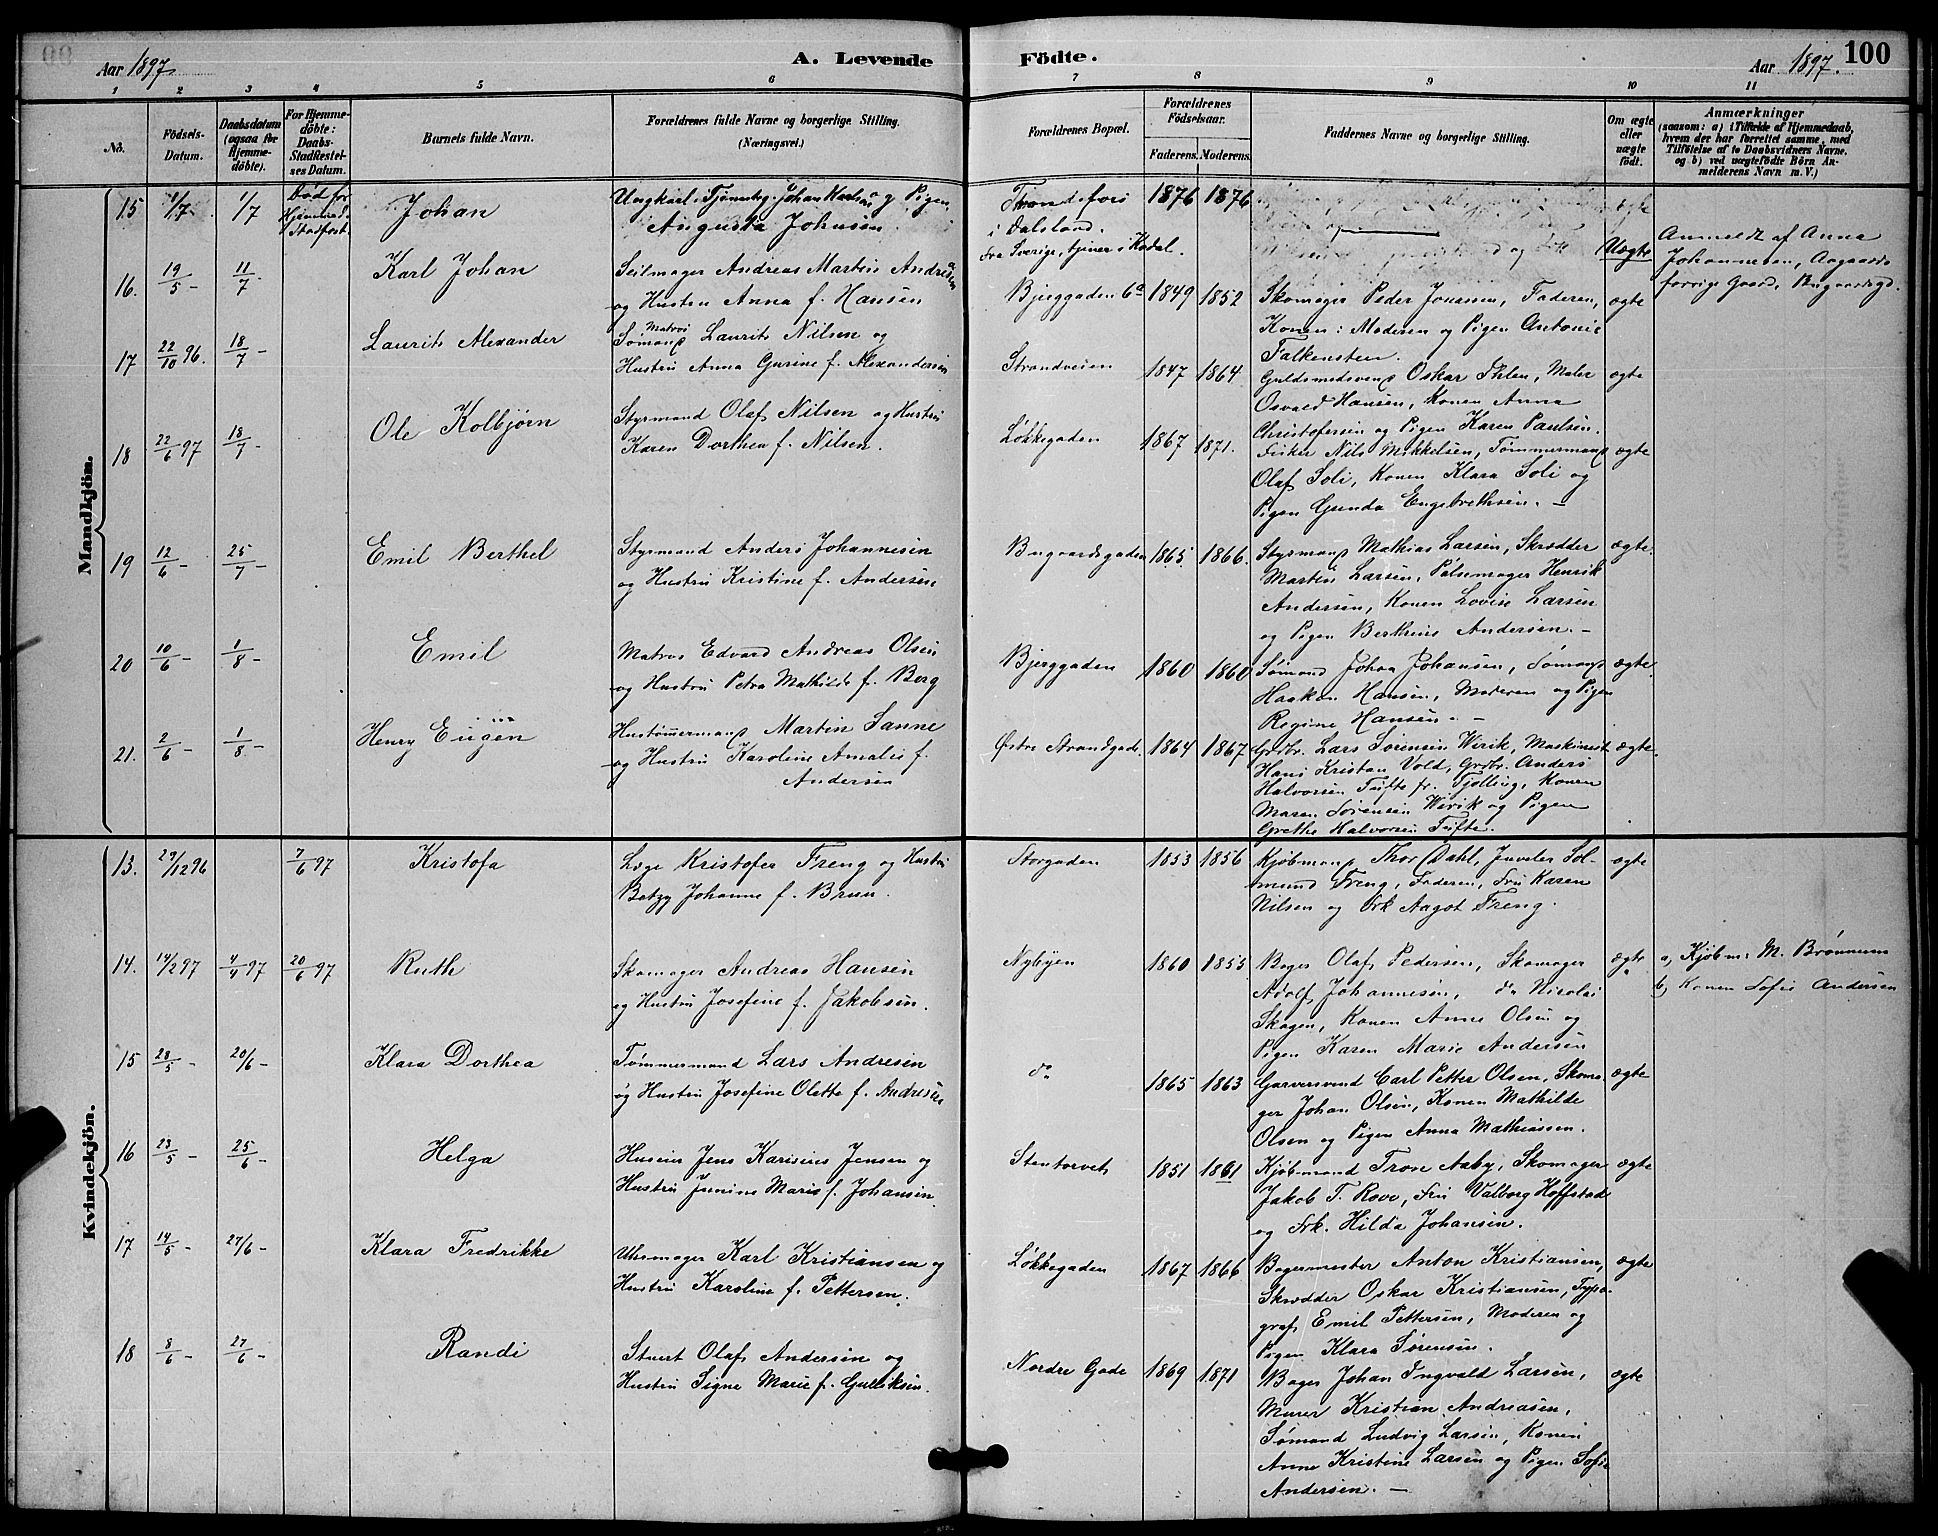 Aar 1897.
A. Levende
Födte.
Aar 1897.
100
1 2 3 4 5 6
7 8 9 10 11
No.
Födsels-Datum.
Daabsdatum (ogsaa for Hjemmedöbte).
For Hjemmedöbte: Daabs-Stadfestelses Datum.
Barnets fulde Navn.
Forældrenes fulde Navne og borgerlige Stilling.
(Næringsvei.)
Forældrenes Bopæl.
Forældrenes Födselsaar.
Faderens. Moderens.
Faddernes Navne og borgerlige Stilling.
Om ægte eller uægte födt.
Anmærkninger
(saasom: a) i Tilfælde af Hjemmedaab, hvem der har forrettet samme, med Tilföielse af to Daabsvidners Navne, og b) ved uægtefödte Börn Anmelderens Navn m. V.)
Mandkjön.
15 1/7 - 1/7 Död før Hjemmed. Stadfæst. Johan
Ungkarl, Tjenesteg. Johan Karlsen og Pigen
Augusta Johnsen.
i Dalsland.
fra Sverige, tjener i Kodal.
1876 1876
Uægte
Anmeldt af Anna
Johannesen, Aagaards
forrige Gaard, Bugaardsgd.
16. 19/5 - 11/7 Karl Johan
Seilmager Andreas Martin Andresen
og Hustru Anna f. Hansen
Bjerggaden 6a 1849 1852
Skomager Peder Jonssen, Faderen,
Konen: Moderen og Pigen Antonie
Falkensteen.
ægte
17 22/10 96. 18/7 - Laurits Alexander
Matros
Sømand Laurits Nilsen og
Hustru Anna Gurine f. Alexandersen
Strandveien 1847 1864
Guldsmedsvend Oskar Ihlen, Maler
Osvald Hansen, Konen Anna
Christofersen og Pigen Karen Paulsen.
ægte
18 22/6 97 18/7 - Ole Kolbjørn
Styrmand Olaf Nilsen og Hustru
Karen Dorthea f. Nilsen.
Løkkegaden 1867 1871.
Fisker Nils Mikkelsen, Tømmermand
Olaf Soli, Konen Klara Soli og
Pigen Gunda Engebrethsen. -
ægte
19 12/6 - 25/7 - Emil Berthel
Styrmand Anders Johannesen
og Hustru Kristine f. Andersen.
Bugaardsgaden 1865 1866.
Styrmand Mathias Larsen, Skrædder
Martin Larsen, Pølsemager Henrik
Andersen, Konen Lovise Larsen
og Pigen Berthine Andersen. -
ægte.
20 10/6 - 1/8 - Emil
Matros Edvard Andreas Olsen
og Hustru Petra Mathilde f. Berg
Bjerggaden 1860 1860
Sømand Johan Johansen, Sømand
Haakon Hansen, Moderen og Pigen
Regine Hansen. -
ægte.
21. 2/6 - 1/8 - Henry Eugen
Hustømmermand Martin Sanne
og Hustru Karoline Amalie f.
Andersen
Østre Strandgade. 1864 1867
Grdbr. Lars Sørensen Wirik, Maskinist
Hans Kristian Vold, Grdbr. Anders
Halvorsen Tufte fr. Tjølling, Konen
Maren Sørensen Wirik og Pigen
Grethe Halvorsen Tufte.
ægte.
Kvindekjön.
13. 29/12 96 7/6 97 Kristofa
Læge Kristofer Freng og Hustru
Betzy Johanne f. Bruun.
Storgaden 1853 1856
Kjøbmand Thor Dahl, Juveler Sol-
mund Freng, Faderen, Fru Karen
Nilsen og Frk Aagot Freng.
ægte
14. 14/2 97 4/4 97 20/6 97 Ruth
Skomager Andreas Hansen
og Hustru Josefine f. Jakobsen.
Nybyen 1860 1855
Bager Olaf Pedersen, Skomager
Adolf Johannesen, do Nicolai
Skogen, Konen Anne Olsen og
Pigen Karen Marie Andersen
ægte
a, Kjøbm: M. Brønnum
b, Konen Sofie Andersen
15 28/5 - 20/6 - Klara Dorthea
Tømmermand Lars Andresen
og Hustru Josefine Olette f. Andresen
do 1865 1863
Garversvend Carl Petter Olsen, Skoma-
ger Johan Olsen, Konen Mathilde
Olsen og Pigen Anna Mathiassen.
ægte
16 23/5 - 25/6 - Helga
Huseier Jens Karisius Jensen og
Hustru Jensine Marie f. Johansen.
Stentorvet 1851 1861
Kjøbmand Trone Aaby, Skomager
Jakob T. Rove, Fru Valborg Hoffstad
og Frk. Hilda Johansen.
ægte
17 14/5 - 27/6 - Klara Fredrikke
Uhrmager Karl Kristiansen og
Hustru Karoline f. Pettersen.
Løkkegaden 1867 1866
Bagermester Anton Kristiansen,
Skrædder Oskar Kristiansen, Typo-
graf Emil Pettersen, Moderen og
Pigen Klara Sørensen.
ægte
18 8/6 - 27/6 - Randi
Stuert Olaf Andersen og
Hustru Signe Marie f. Gulliksen.
Nordre Gade 1869 1871
Bager Johan Ingvald Larsen,
Murer Kristian Andreasen,
Sømand Ludvig Larsen, Konen
Anne Kristine Larsen og Pigen Sofie
Andersen. -
ægte